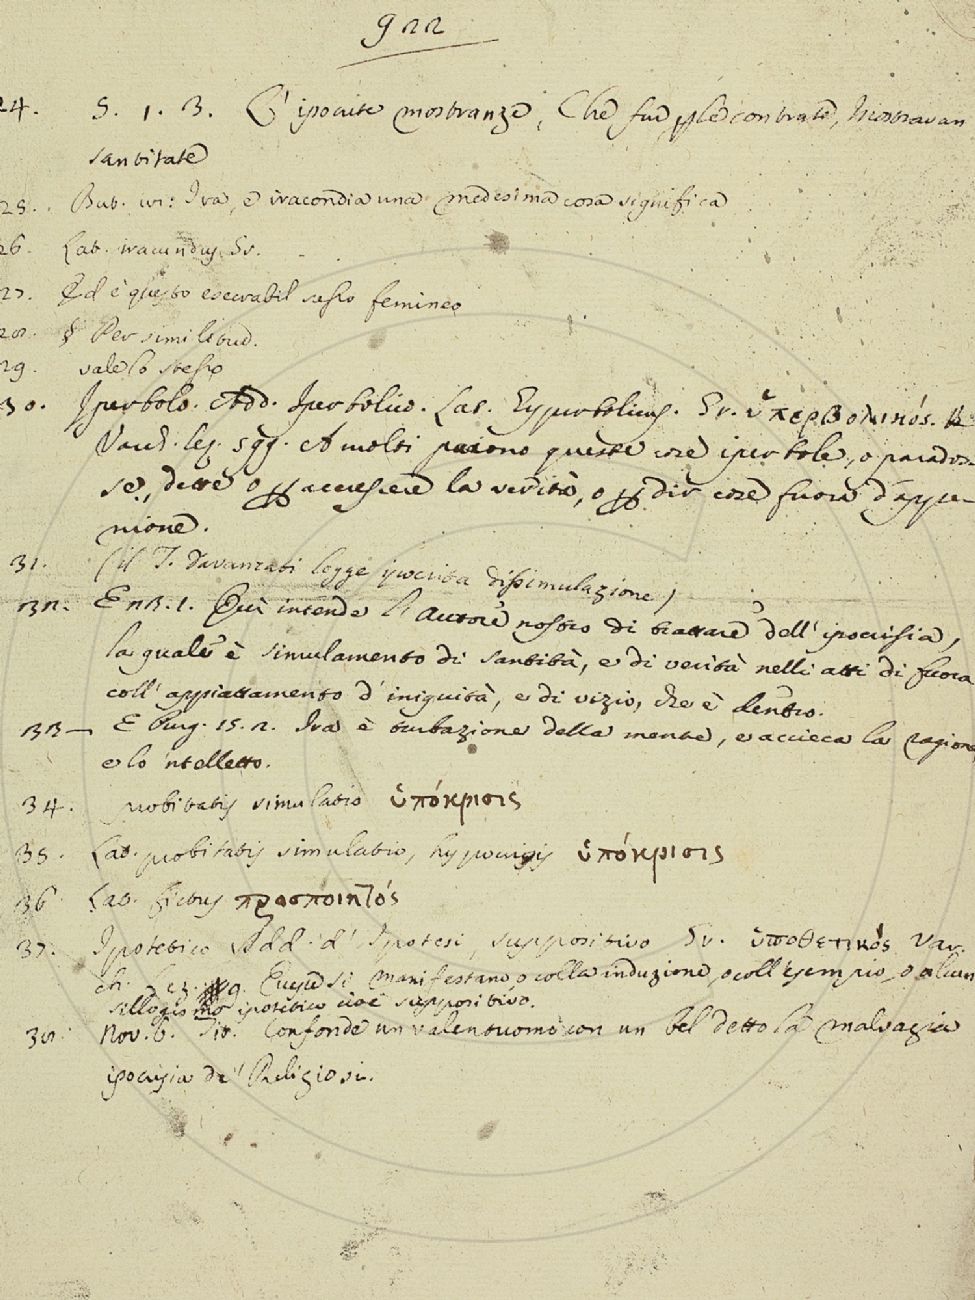 922
24. S. 1. 3. L'ipocrite mostranze, Che fur contrate, Mostravan
santitate
25. But. ivi: Ira, e iracondia una medesima cosa significa
26. Lat. iracundus, Gr.
27. Ed è questo esecrabil sesso femineo
28. § Per similitud.
29. vale lo stesso
30. Iperbolo. Add. Iperbolico. Lat. Hyperbolicus. Gr. ὑπερβολικός.
Varch. lez. 599. A molti paiono queste cose iperbole, o parados-
se, dette o per accrescere la verità, o per dir cose fuora d'oppe-
nione.
31. (il T. Davanzati legge ipocrita dissimulazione)
32. E 23. 1. Qui intende l'autore nostro di trattare dell'ipocrisia,
la quale è simulamento di santità, e di verità nelli atti di fuora
coll'appiattamento d'iniquità, e di vizio, che è dentro.
33— E Purg. 15. 2. Ira è turbazione della mente, e accieca la ragione,
e lo 'ntelletto.
34. probitatis simulatio ὑπόκρισις
35. Lat. probitatis simulatio, hypocrisis ὑπόκρισις
36 Lat. fictus προσποιητός
37. Ipotetico Add. d'Ipotesi, suppositivo Gr. ὑποθετικός Var.
ch. Lez. 9. si manifestano, o colla induzione, o coll'esempio, o alcun
sillogismo ipotetico cioè suppositivo.
38. Nov. 6. tit. Confonde un valentuomo con un bel detto la malvagia
ipocrisia de' Religiosi.